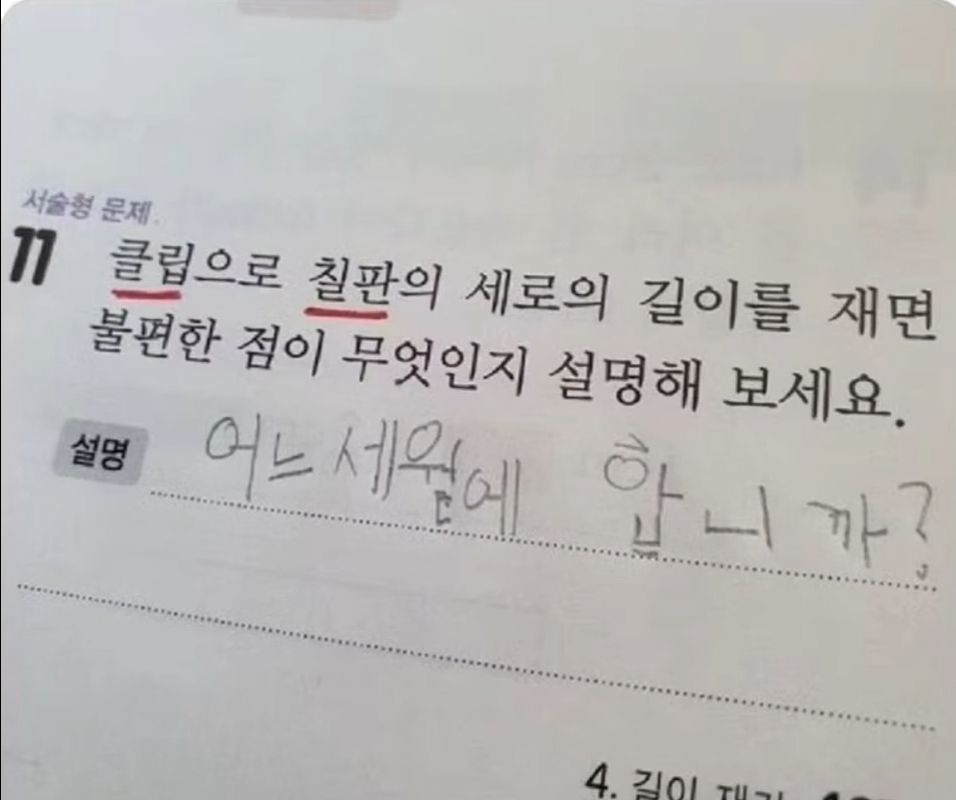 서술형 문제
11 클립으로 칠판의 세로의 길이를 재면
불편한 점이 무엇인지 설명해 보세요.
설명 어느세월에 합니까?
4. 길이 재기